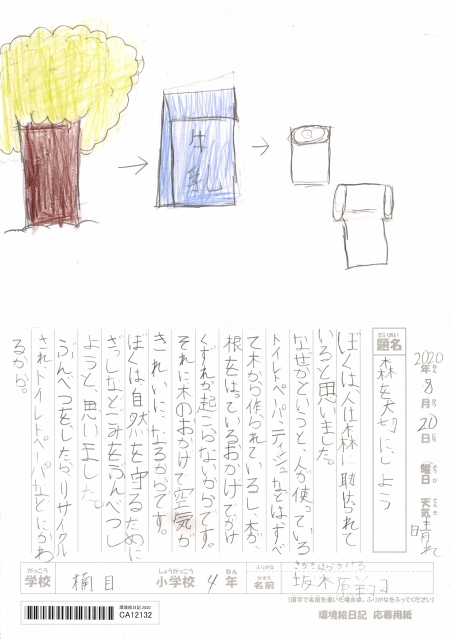 牛乳
2020年8月20日 曜日 天気 晴れ
だいめい
題名 森を大切にしよう
ぼくは、人は森に助けられて
いると思いました。
なぜかというと、人が使っている
トイレットペーパー、ティッシュなどはすべ
て木から作られているし、木が
根をはっているおかげでがけ
くずれが起こらないからです。
それに木のおかげで空気が
きれいになるからです。
ぼくは、自然を守るために
ざっしなどごみをぶんべつし
ようと、思いました。
ぶんべつをしたら、リサイクル
されトイレットペーパーなどにかわ
るから。
がっこう しょうがっこう ねん
学校 楠目 小学校 4年
ふりがな
なまえ
名前
(漢字で名前を書いた場合は、ふりがなをふってください)
環境絵日記 2020
CA12132
環境絵日記 応募用紙